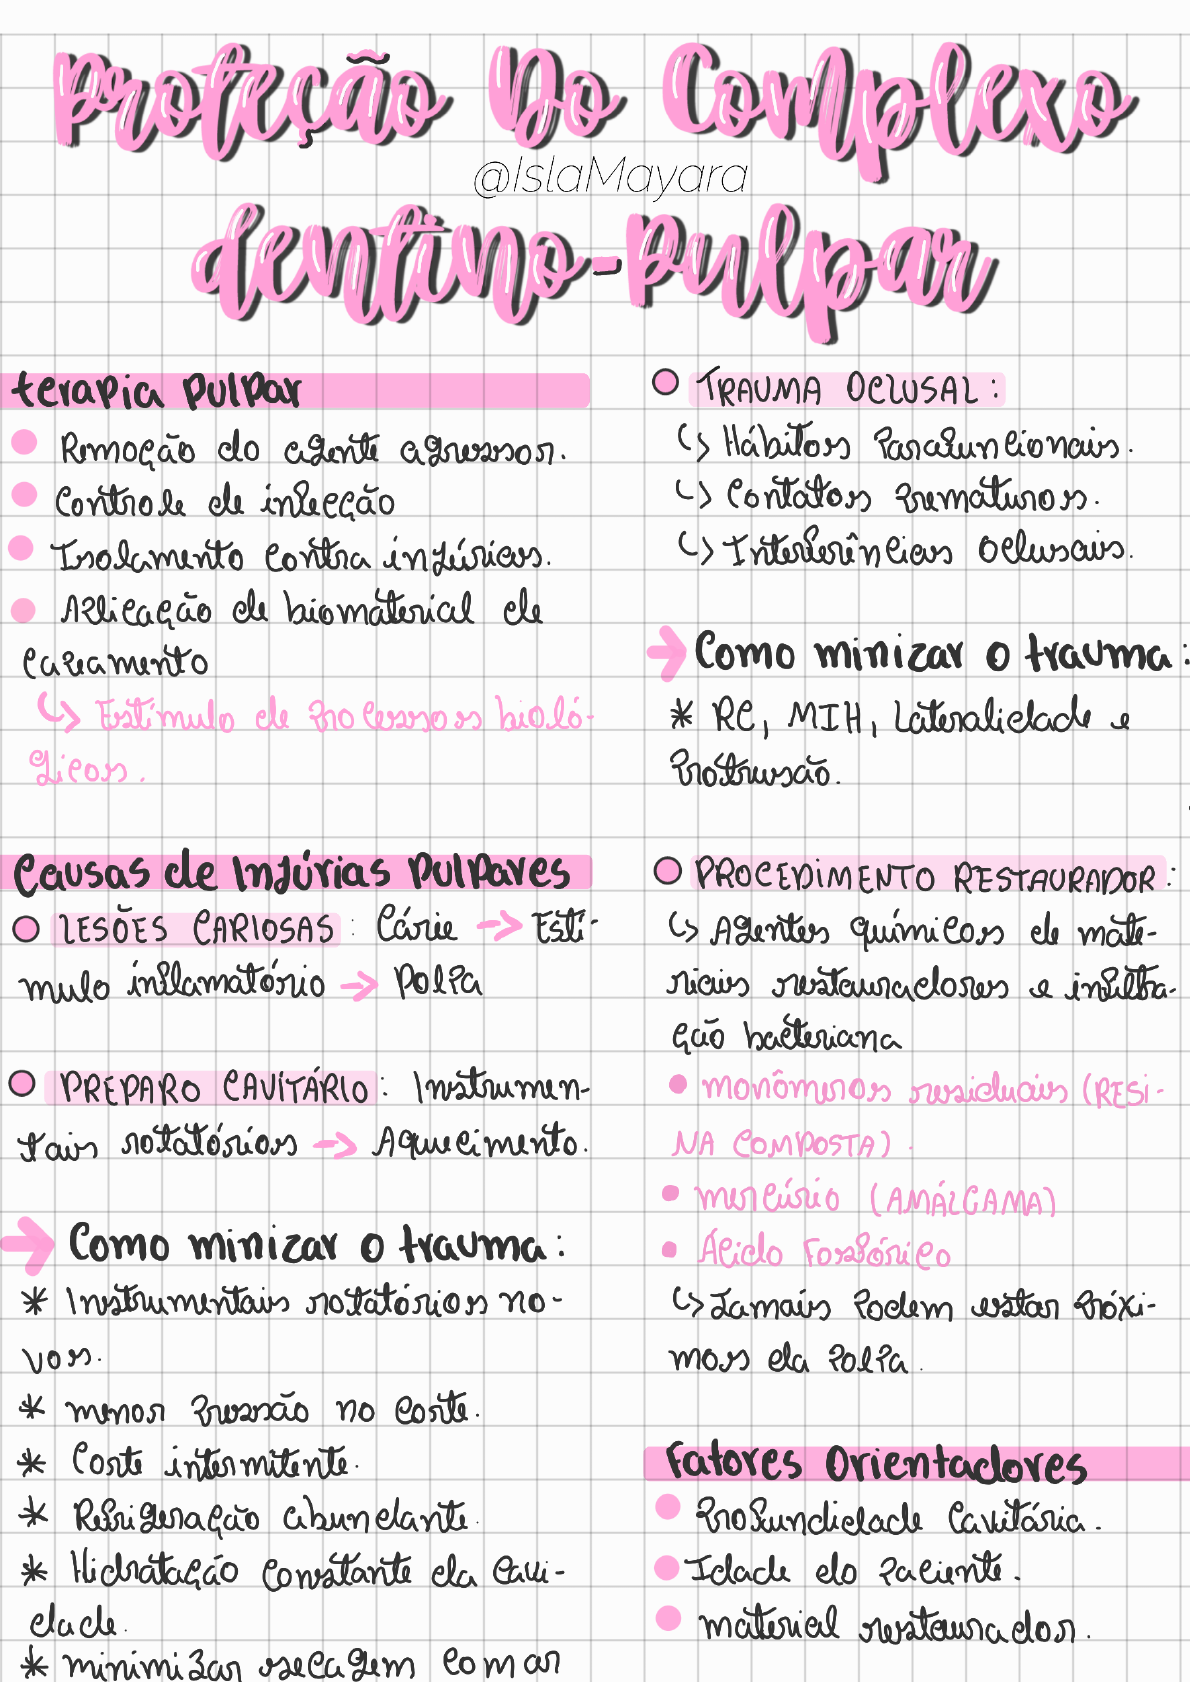 Proteção Do Complexo
@IslaMayara
dentino-pulpar
terapia pulpar
Remoção do agente agressor.
Controle de infecção
Isolamento contra injúrias.
Aplicação de biomaterial de
capeamento
Estímulo de processos bioló-
gicos.
Causas de Injúrias Pulpares
LESÕES CARIOSAS: Cárie → Estí-
mulo inflamatório → Polpa
PREPARO CAVITÁRIO: Instrumen-
tais rotatórios → Aquecimento.
→ Como minizar o trauma:
* Instrumentais rotatórios no-
vos.
* menor pressão no corte.
* Corte intermitente.
* Refrigeração abundante.
* Hidratação constante da cavi-
dade.
* minimizar secagem com ar
TRAUMA OCLUSAL:
↳ Hábitos Parafuncionais.
↳ Contatos Prematuros.
↳ Interferências Oclusais.
→ Como minizar o trauma:
* RC, MIH, Lateralidade e
Protrusão.
PROCEDIMENTO RESTAURADOR:
↳ Agentes químicos de mate-
riais restauradores e infiltra-
ção bacteriana
• monômeros residuais (RESI-
NA COMPOSTA).
• mercúrio (AMÁLGAMA)
• Ácido Fosfórico
↳ Jamais Podem estar Próxi-
mos da Polpa.
Fatores Orientadores
Profundidade Cavitária.
Idade do Paciente.
material restaurador.